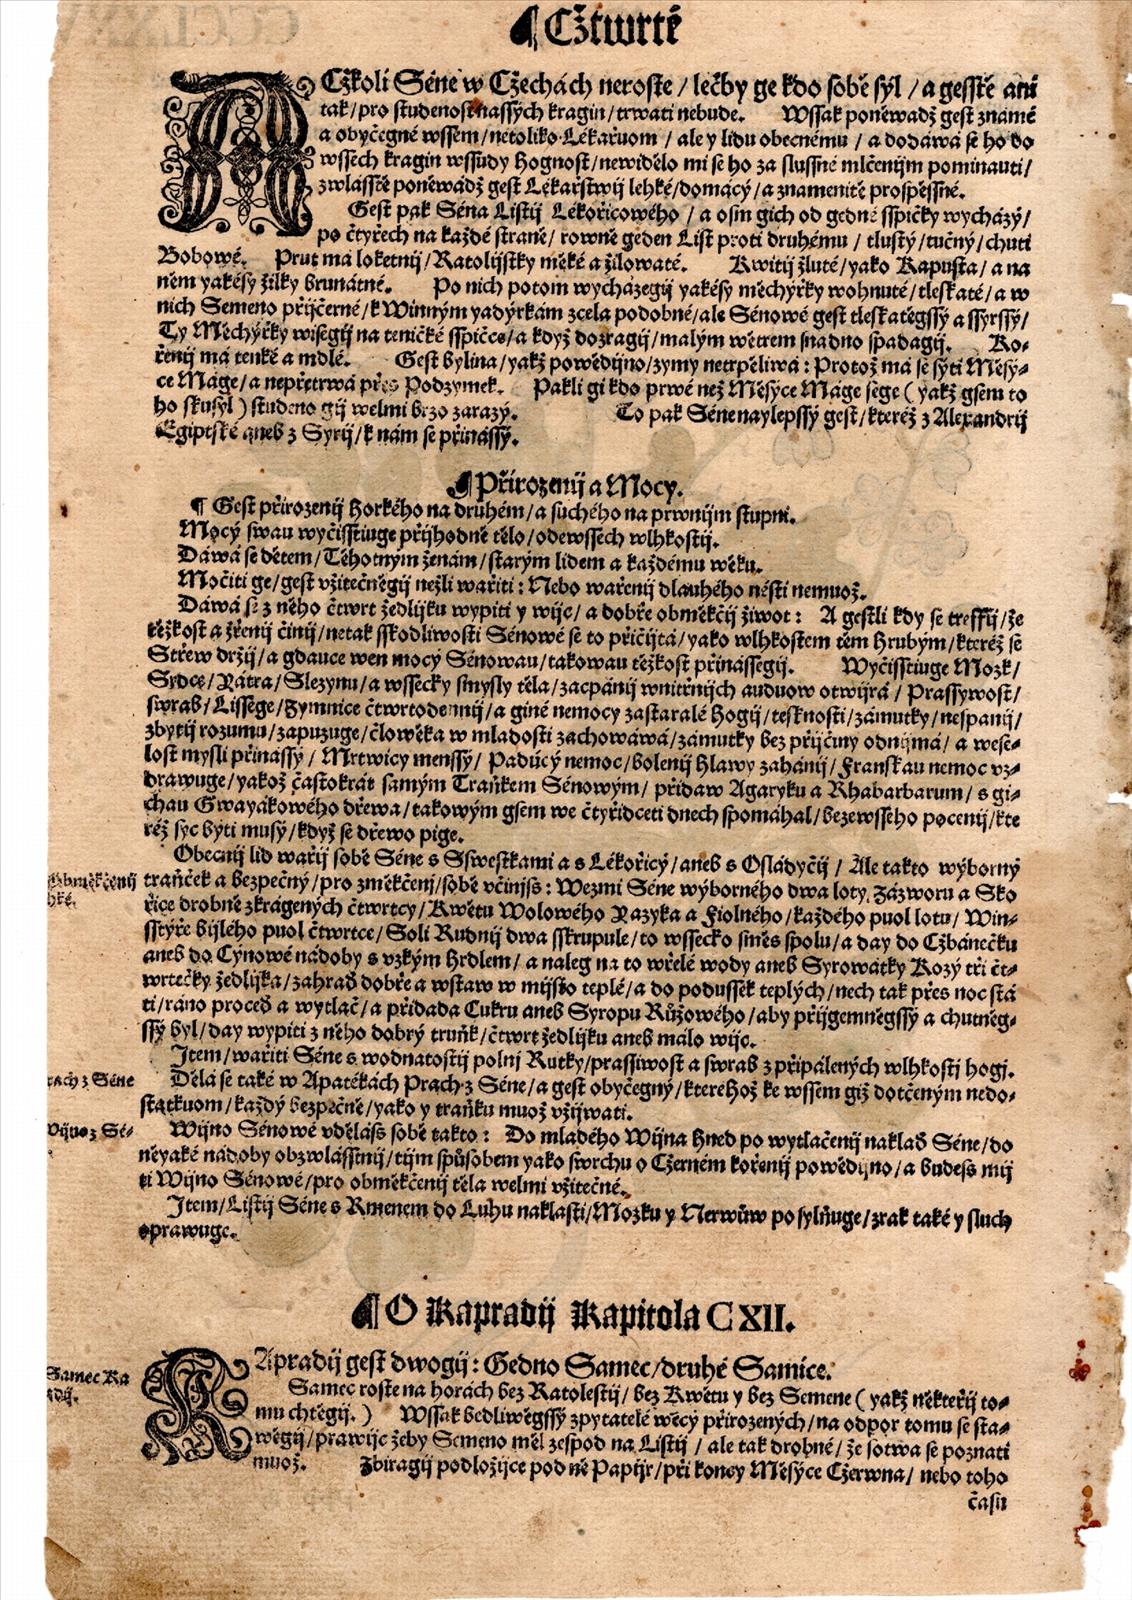 ¶ Cžtwrté
ACžkoli Séne w Cžechách neroste / lečby ge kdo sobě syl / a gesstě ani
tak / pro studenost nassých kragin / trwati nebude. Wssak poněwadž gest známé
a obyčegné wssem / netoliko Lékařuom / ale y lidu obecnému / a dodáwá se ho do
wssěch kragin wssudy hognost / newidělo mi se ho za slussné mlčenijm pominauti /
zwlásstě poněwádž gest Lékařstwij lehké / domácý / a znamenitě prospěssné.
Gest pak Séna Listij Lékořicowého / a osm gich od gedné sspičky wycházý /
po čtyřech na každé straně / rowně geden List proti druhému / tlustý / tučný / chuti
Bobowé. Prut má loketnij / Ratolijstky měké a žilowaté. Kwitij žluté / yako Kapusta / a na
něm yakésy žilky brunátné. Po nich potom wycházegij yakésy měchýřky wohnuté / tleskaté / a w
nich Semeno přijčerné / k Winným yadýrkám zcela podobné / ale Sénowé gest tleskatěgssý a ssyrssý /
Ty Měchýřky wisegij na teničké sspičce / a když dozragij / malým wětrem snadno spadagij. Ko-
řenij má tenké a mdlé. Gest bylina / yakž powědijno / zymy netrpěliwá : Protož má se sýti Měsý-
ce Máge / a nepřetrwá přes Podzymek. Pakli gi kdo prwé než Měsýce Máge sege ( yakž gsem to
ho skusyl ) studeno gij welmi brzo zarazý. To pak Séne naylepssý gest / kteréž z Alexandrij
Egiptské aneb z Syrij / k nám se přinássý.
¶ Přirozenij a Mocy.
¶ Gest přirozenij horkého na druhém / a suchého na prwnijm stupni.
Mocý swau wyčisstiuge přijhodně tělo / ode wssech wlhkostij.
Dáwá se dětem / Těhotným ženám / starým lidem a každému wěku.
Močiti ge / gest vžitečněgij nežli wařiti : Nebo wařenij dlauhého nésti nemuož.
Dáwá se z něho čtwrt žedlijku wypiti y wijc / a dobře obměkčij žiwot : A gestli kdy se treffij / že
těžkost a žřenij činij / ne tak sskodliwosti Sénowé se to přičijtá / yako wlhkostem těm hrubým / kteréž se
Střew držij / a gdauce wen mocý Sénowau / takowau těžkost přinássegij. Wyčisstiuge Mozk /
Srdce / Játra / Slezynu / a wssecky smysly těla / zacpánij wnitřnijch auduow otwijrá / Prassywost /
swrab / Lissege / Zymnice čtwrtodennij / a giné nemocy zastaralé hogij / teskností / zámutky / nespanij /
zbytij rozumu / zapuzuge / člowěka w mladosti zachowáwá / zámutky bez přijčiny odnijmá / a wese-
lost mysli přinássý / Mrtwicy menssý / Padúcý nemoc / bolenij hlawy zahánij / Franskau nemoc vz-
drawuge / yakož častokrát samým Traňkem Sénowým / přidaw Agaryku a Rhabarbarum / s gi-
chau Gwayakowého dřewa / takowým gsem we čtyřidceti dnech spomáhal / beze wsseho pocenij / kte
réž syc býti musý / když se dřewo pige.
Obecnij lid wařij sobě Séne s Sswestkami a s Lékořicý / aneb s Osládyčij / Ale takto wýborný
traňček a bezpečný / pro změkčenj / sobě včinjss : Wezmi Séne wýborného dwa loty, Zázworu a Sko
řice drobně zkrágených čtwrtcy / Kwětu Wolowého Jazyka a Fiolného / každého puol lotu / Win-
sstýře bijlého puol čtwrtce / Soli Rudnij dwa sskrupule / to wssecko směs spolu / a day do Cžbánečku
aneb do Cýnowé nádoby s vzkým hrdlem / a naleg na to wřelé wody aneb Syrowátky Kozý tři čt-
wrtečky žedlijka / zahraď dobře a wstaw w mijsto teplé / a do podussek teplých / nech tak přes noc stá
ti / ráno proceď a wytlač / a přidada Cukru aneb Syropu Růžowého / aby přijgemněgssý a chutněg-
ssý byl / day wypiti z něho dobrý truňk / čtwrt žedlijku aneb málo wijc.
Item / wařiti Séne s wodnatostij polnj Rutky / prassiwost a swrab z připálených wlhkostí hogj.
Dělá se také w Apatékách Prach z Séne / a gest obyčegný / kteréhož ke wssem giž dotčeným nedo-
statkuom / každý bezpečně / yako y traňku muož vžijwati.
Wijno Sénowé vděláss sobě takto : Do mladého Wijna hned po wytlačenij naklaď Séne / do
něyaké nádoby obzwlásstnij / tijm spůsobem yako swrchu o Cžerném kořenij powědijno / a budess mij
ti Wijno Sénowé / pro obměkčenij těla welmi vžitečné.
Item / Listij Séne s Rmenem do Luhu naklasti / Mozku y Nerwůw posylňuge / zrak také y sluch
oprawuge.
Obměkčenij
prach z Séne
Wijno z Sé-
¶ O Kapradij Kapitola CXII.
KApradij gest dwogij : Gedno Samec / druhé Samice.
Samec roste na horách bez Ratolestij / bez Kwětu y bez Semene ( yakž někteřij to-
mu chtěgij. ) Wssak bedliwěgssý zpytatelé wěcý přirozených / na odpor tomu se sta-
wěgij / prawijc žeby Semeno měl zespod na Listij / ale tak drobné / že sotwa se poznati
muož. Zbiragij podložijce pod ně Papijr / při koncy Měsýce Cžerwna / nebo toho
času
Samec Ka
radij.